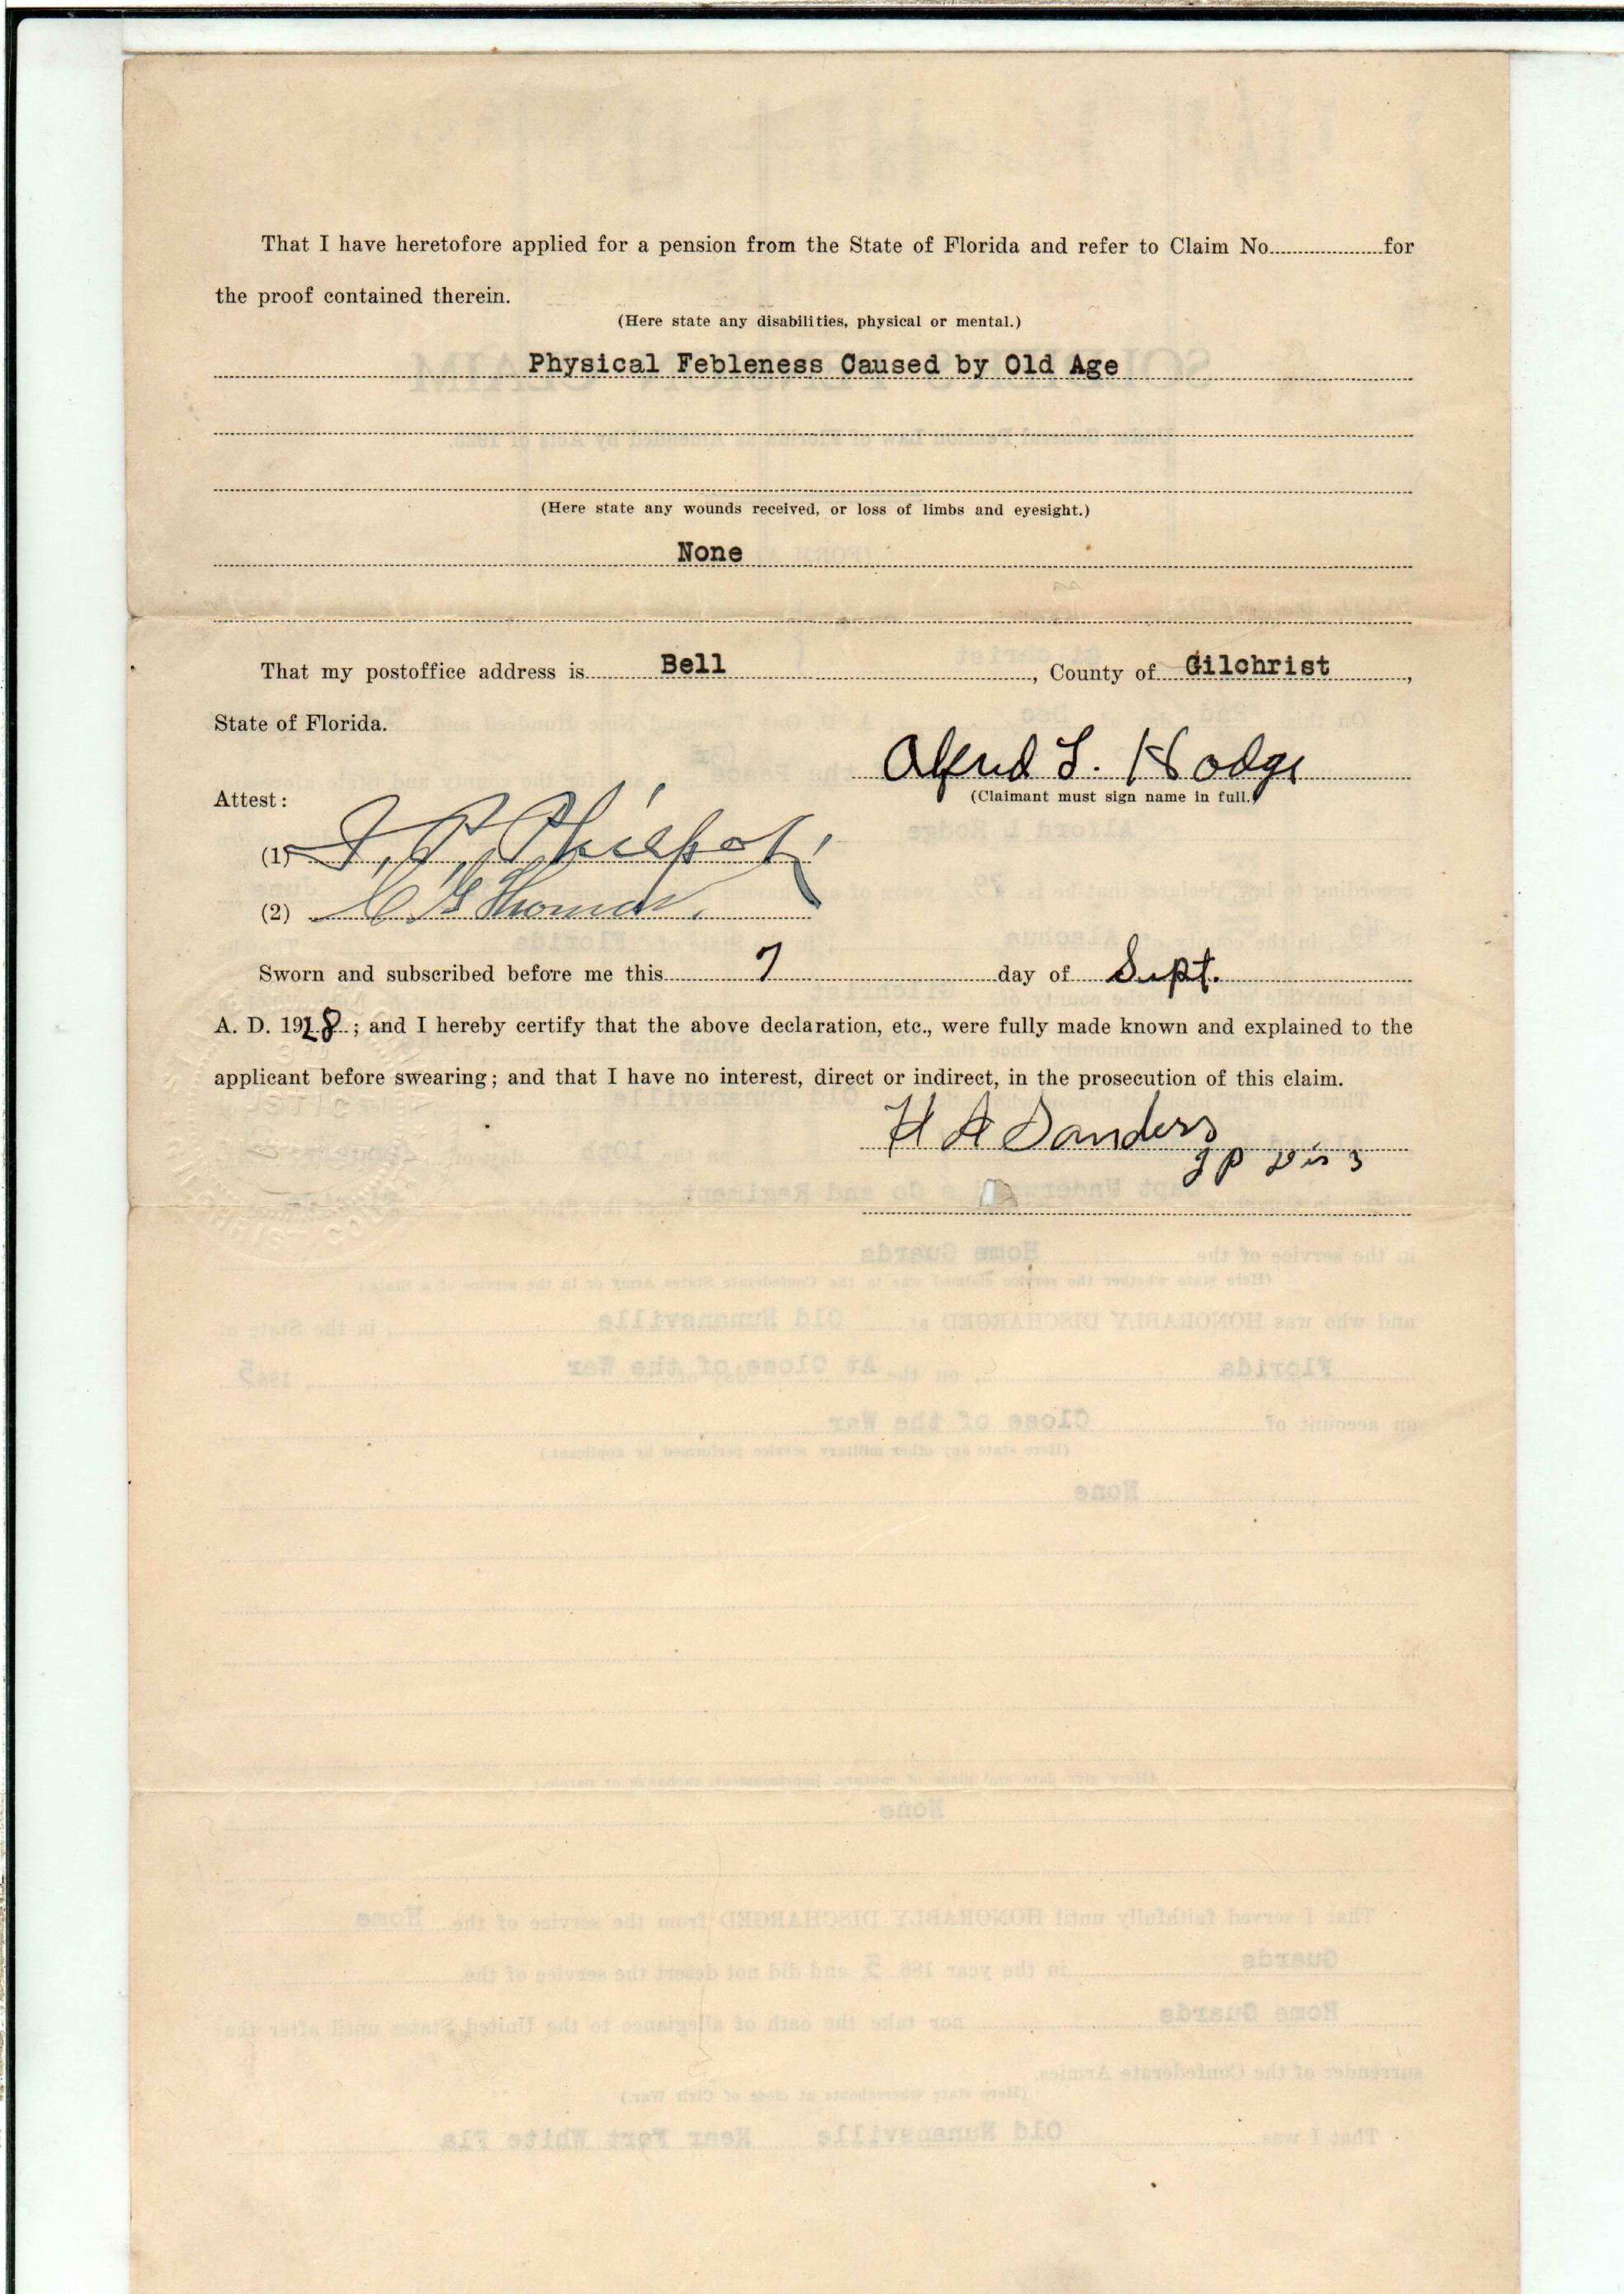 That I have heretofore applied for a pension from the State of Florida and refer to Claim No. for
the proof contained therein.
(Here state any disabilities, physical or mental.)
Physical Febleness Caused by Old Age
(Here state any wounds received, or loss of limbs and eyesight.)
None
That my postoffice address is Bell, County of Gilchrist,
State of Florida.
Alfred L. Hodge
(Claimant must sign name in full.)
Attest:
(1) J. P. Philpot
(2) C G Thomas.
Sworn and subscribed before me this 7 day of Sept.
A. D. 1928; and I hereby certify that the above declaration, etc., were fully made known and explained to the
applicant before swearing; and that I have no interest, direct or indirect, in the prosecution of this claim.
H A Sanders
J P Dis 3